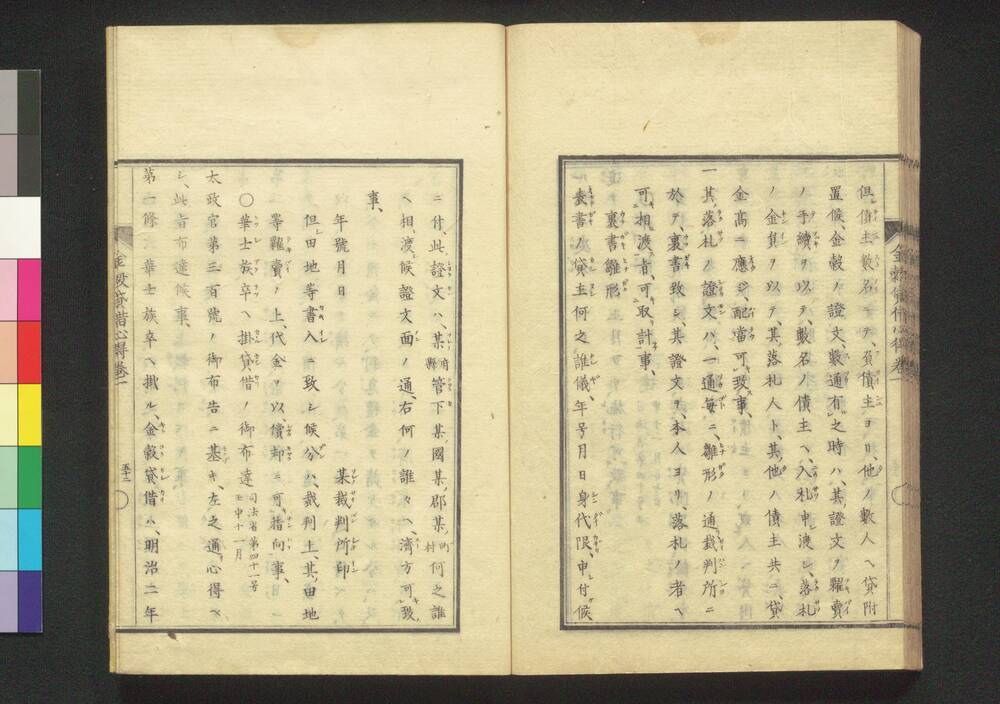 但債主數名ニテ、負債主ヨリ、他ノ數人ヘ貸附
置候、金穀ノ證文、數通有之時ハ、其證文ヲ糶賣
ノ手續ヲ以テ、數名ノ債主ヘ、入札申渡シ、落札
ノ金負ヲ以テ、其落札人ト、其他ノ債主共ニ、貸
金高ニ應ジ、配當可致事、
一其落札ノ證文ハ、一通毎ニ、雛形ノ通、裁判所ニ
於テ、裏書致シ、其證文ヲ、本人ヨリ、落札ノ者ヘ
可相渡旨、可取計事、
裏書雛形
表書ノ貸主何之誰儀、年号月日身代限、申付候
ニ付、此證文ハ、某府縣管下某國某郡某町村何之誰
ヘ相渡候證文面ノ通、右何ノ誰々ヘ、濟方可致
事、
年號月日 某裁判所印
但田地等書入ニ致シ候分ハ、裁判上、其田地
等糶賣ノ上、代金ヲ以償却ニ可措向事、
〇華士族卒ヘ掛貸借ノ御布達 司法省第四十一号 壬申十一月
太政官第三百號ノ御布告ニ基キ、左之通心得ベ
シ、此旨布達候事、
第一條 華士族卒ヘ掛ル、金穀貸借ハ、明治二年
金穀貸借心得卷一
五十二